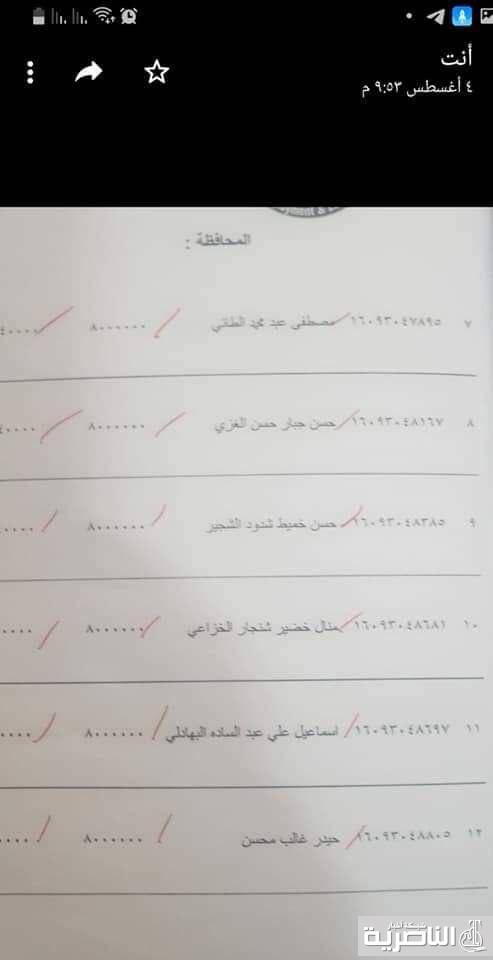 أنت
٤ أغسطس ٩:٥٣ م
yment &
المحافظة :
٧ ١٦٠٩٣٠٤٧٨٩٥ مصطفى عبد محمد الطائي ٨٠٠٠٠٠٠ ٤٠٠٠٠
٨ ١٦٠٩٣٠٤٨١٦٧ حسن جبار حسن الغزي ٨٠٠٠٠٠٠ ٤٠٠٠٠
٩ ١٦٠٩٣٠٤٨٣٨٥ حسن خميط شدود الشجير ٨٠٠٠٠٠٠ ٠٠٠٠
١٠ ١٦٠٩٣٠٤٨٦٨١ منال خضير شنجار الخزاعي ٨٠٠٠٠٠٠ ٠٠٠٠
١١ ١٦٠٩٣٠٤٨٦٩٧ اسماعيل علي عبد الساده البهادلي ٨٠٠٠٠٠٠ ٠٠٠٠
١٢ ١٦٠٩٣٠٤٨٨٠٥ حيدر غالب محسن ٨٠٠٠٠٠٠ ٠٠٠٠
شبكة أخبار
الناصرية